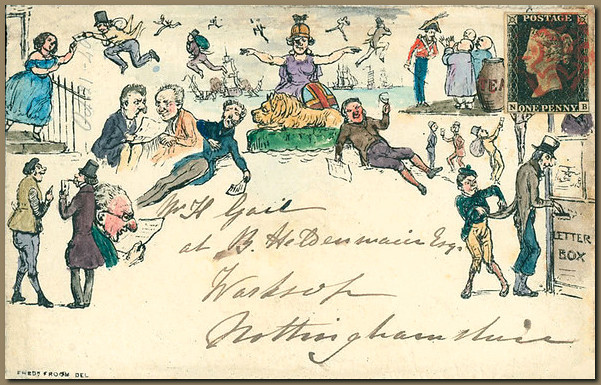 POSTAGE
N ONE PENNY B
TEA
Mr H Gail
at B. Heldenmaier Esq.
Worksop
Nottinghamshire
LETTER
BOX
FREDK FROOM DEL